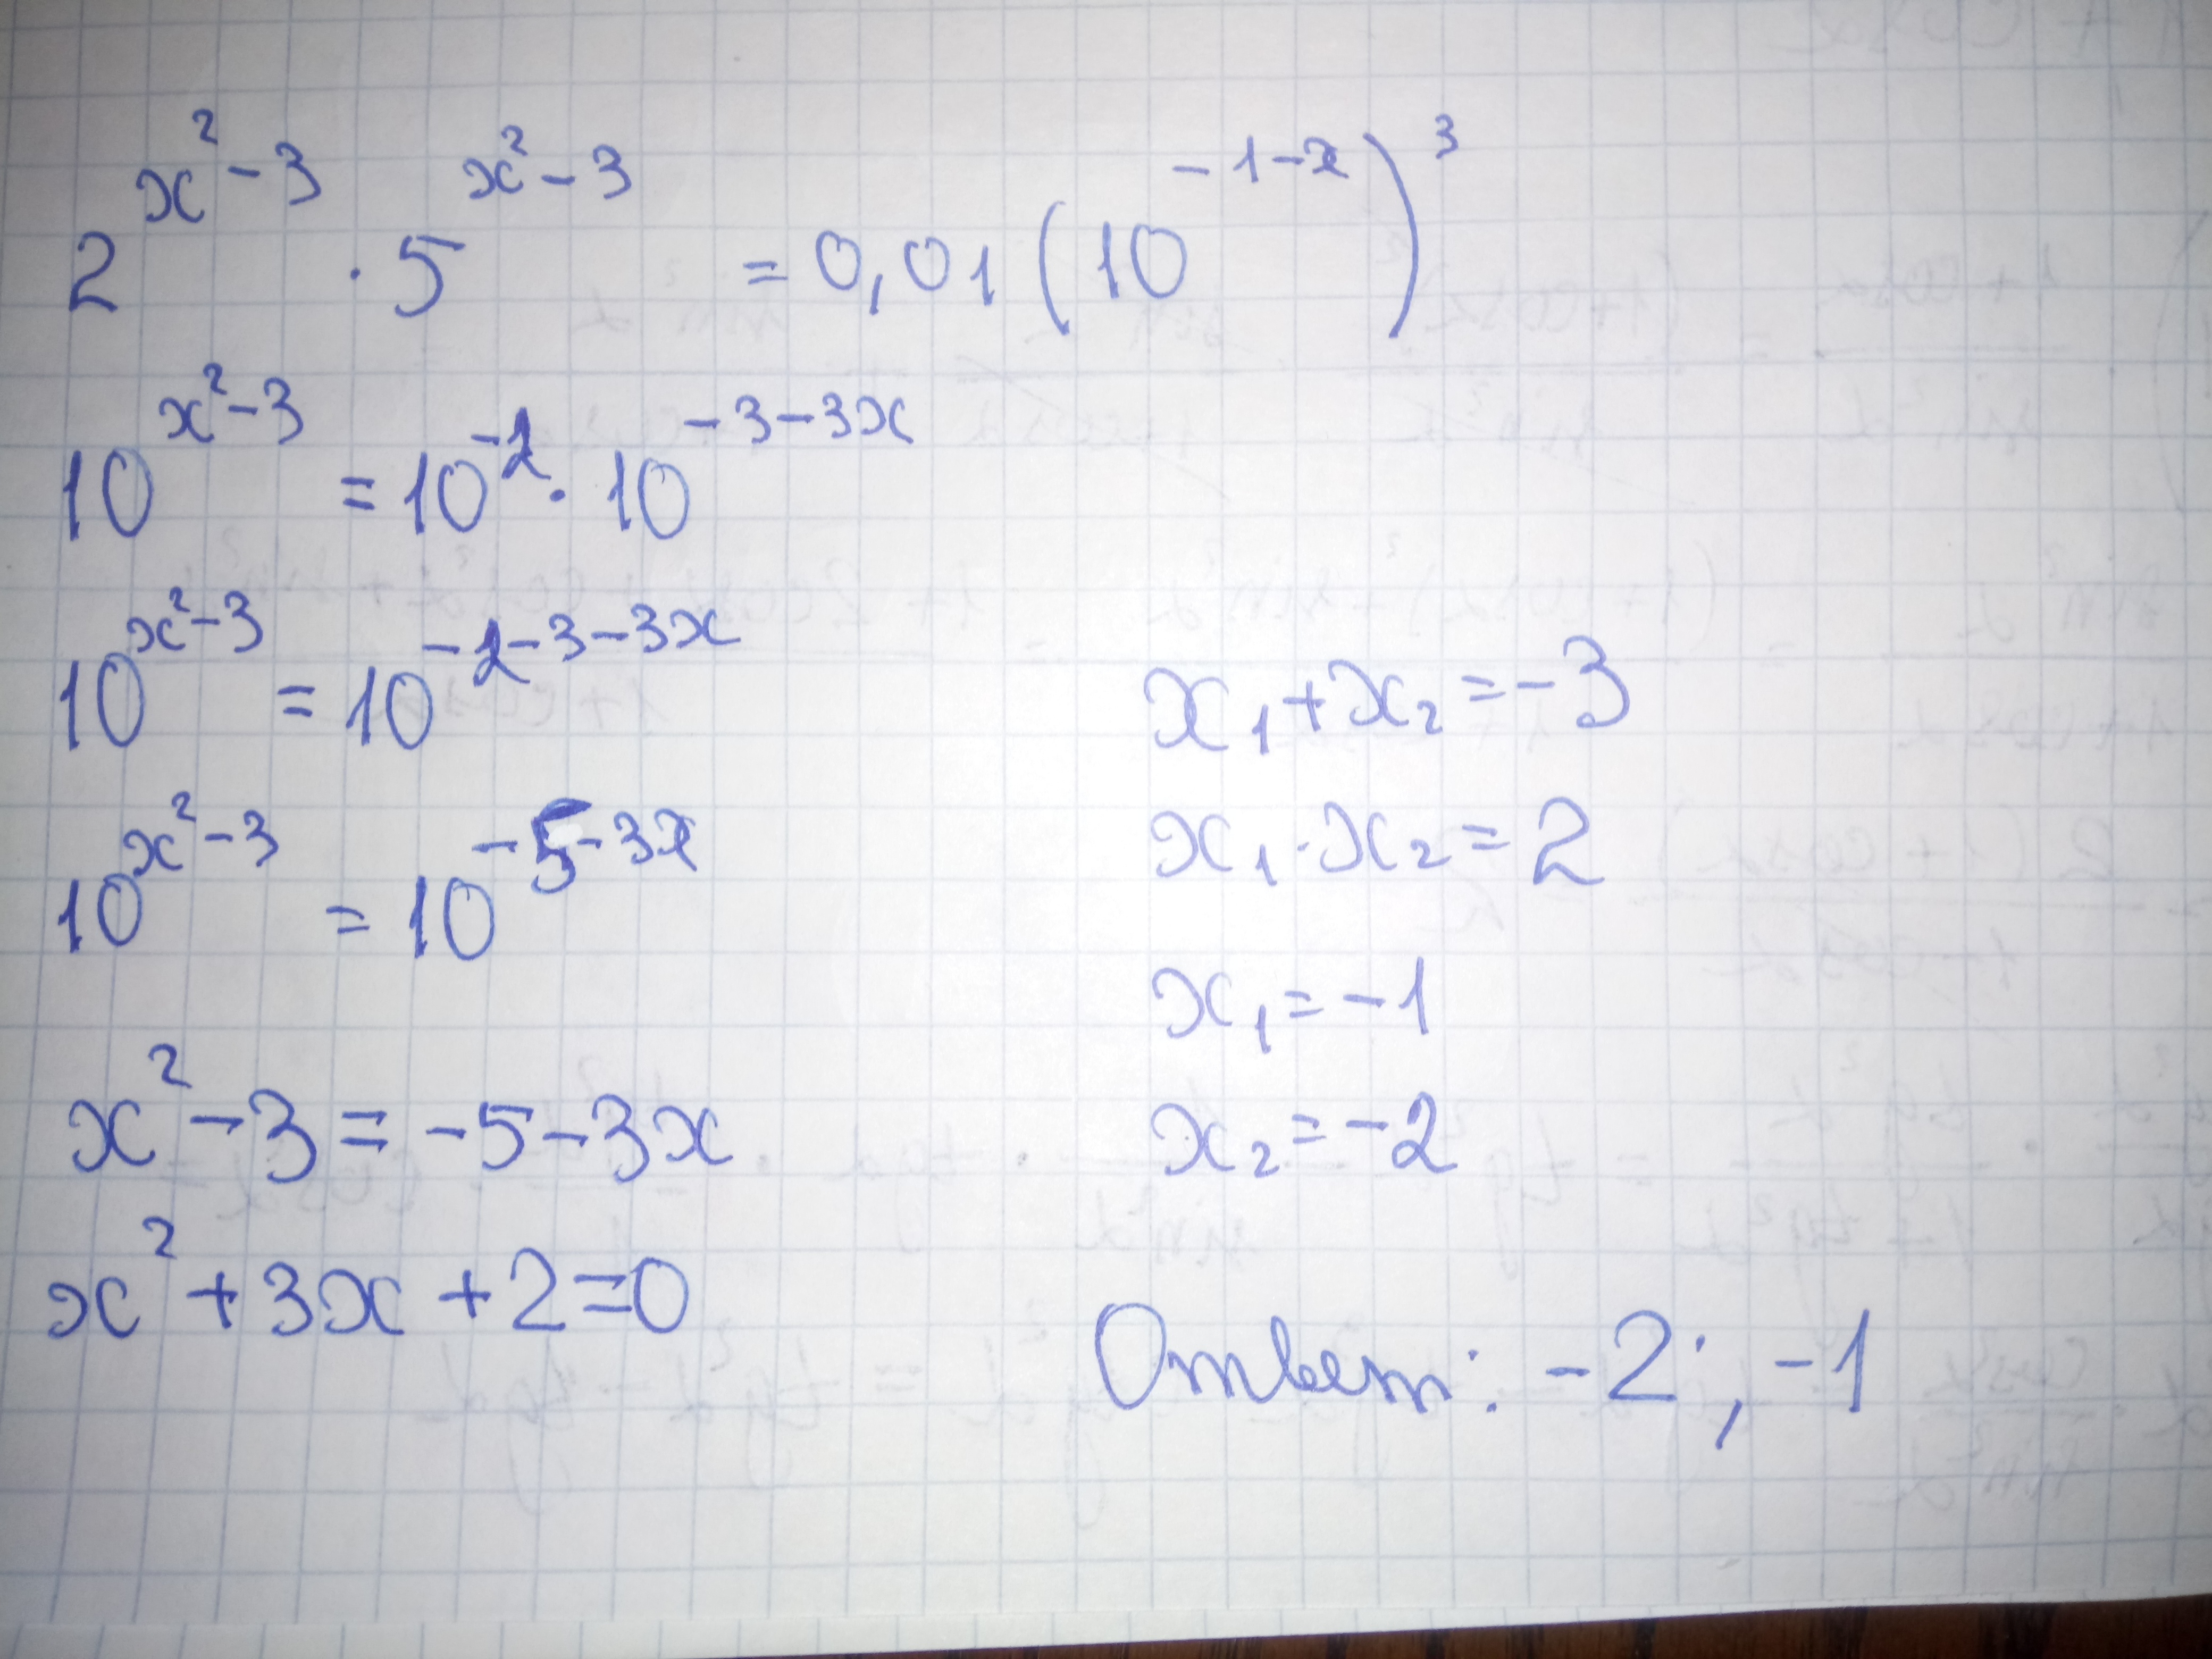 2^{x²-3} · 5^{x²-3} = 0,01 (10^{-1-x})³
10^{x²-3} = 10^{-2} · 10^{-3-3x}
10^{x²-3} = 10^{-2-3-3x}
10^{x²-3} = 10^{-5-3x}
x² - 3 = -5 - 3x
x² + 3x + 2 = 0
x₁ + x₂ = -3
x₁ · x₂ = 2
x₁ = -1
x₂ = -2
Ответ: -2; -1